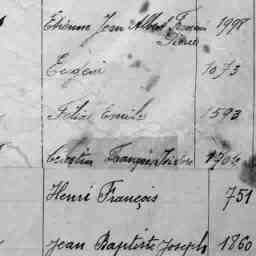 Etienne Jean Albert Francois 1998
Pierre
Eugéni 1073
Félix Emile 1593
Celestin François Isidore 1704
Henri François 751
Jean Baptiste Joseph 1860